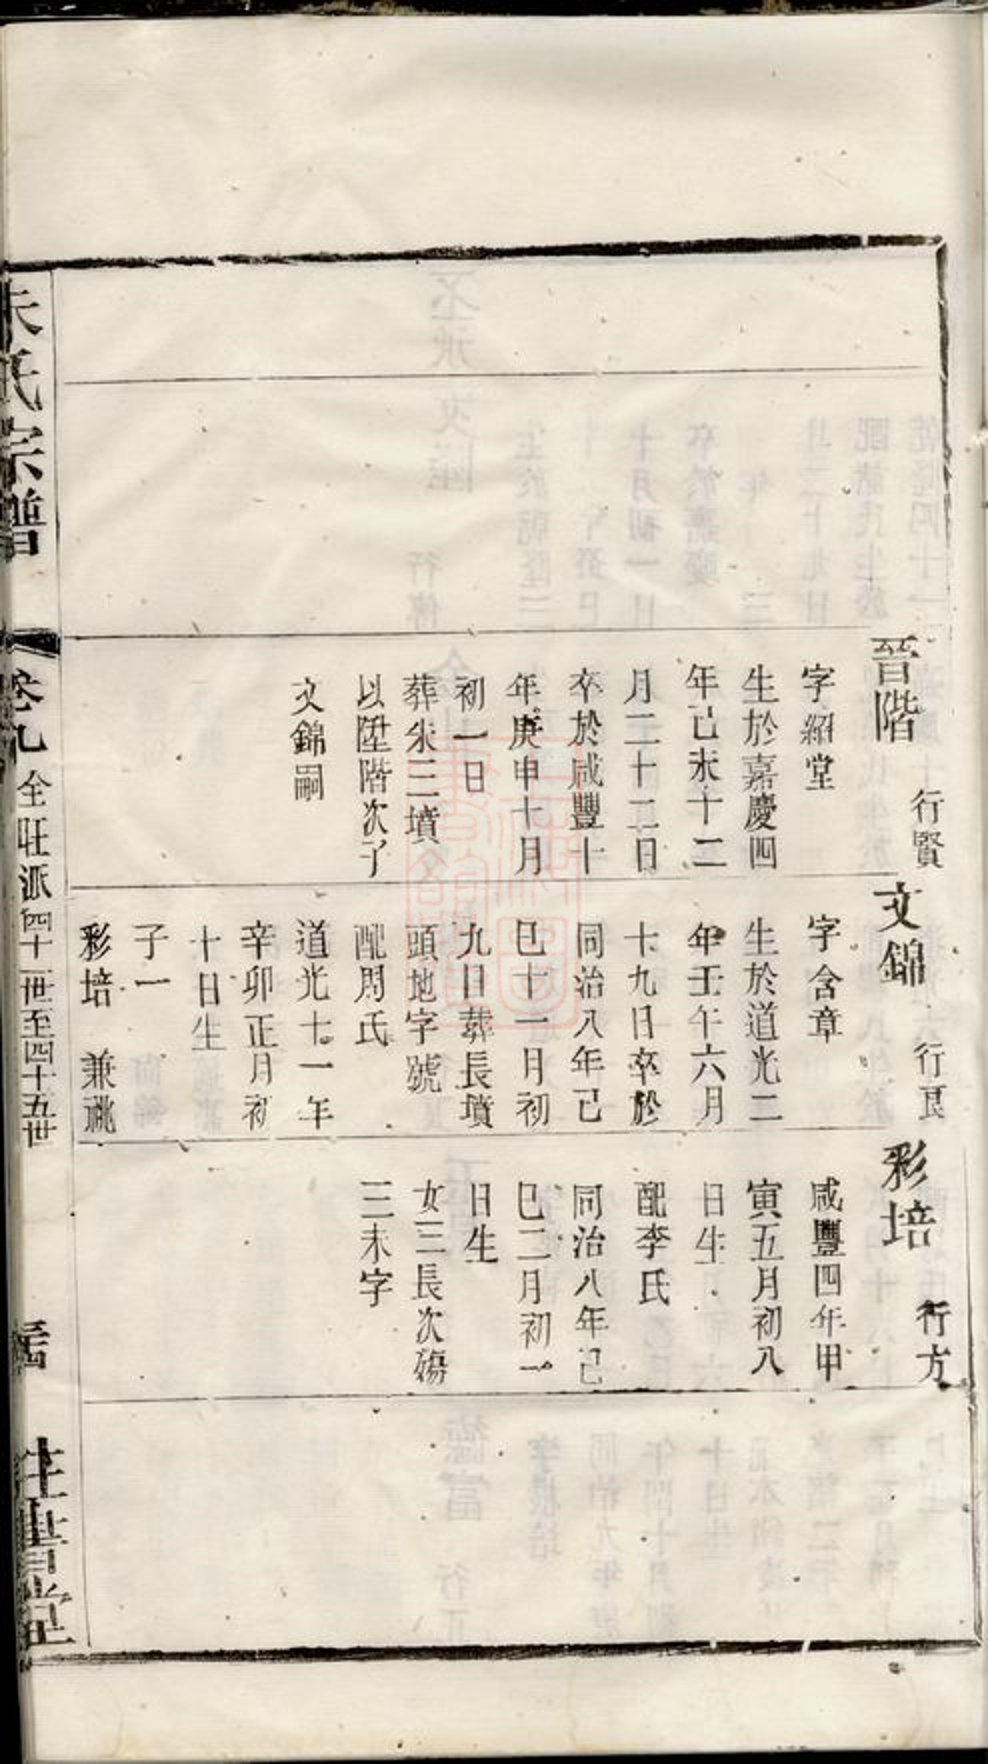 晉階
行賢
字紹堂
生於嘉慶四
年己未十二
月二十二日
卒於咸豐十
年庚申十月
初一日
葬朱三墳
以陞階次子
文錦嗣
文錦
行良
字含章
生於道光二
年壬午六月
十九日卒於
同治八年己
巳十一月初
九日葬長墳
頭地字號
配周氏
道光十一年
辛卯正月初
十日生
子一
彩培 兼祧
彩培
行方
咸豐四年甲
寅五月初八
日生
配李氏
同治八年己
巳二月初一
日生
女三長次殤
三未字
朱氏宗譜
卷九
全旺派四十一世至四十五世